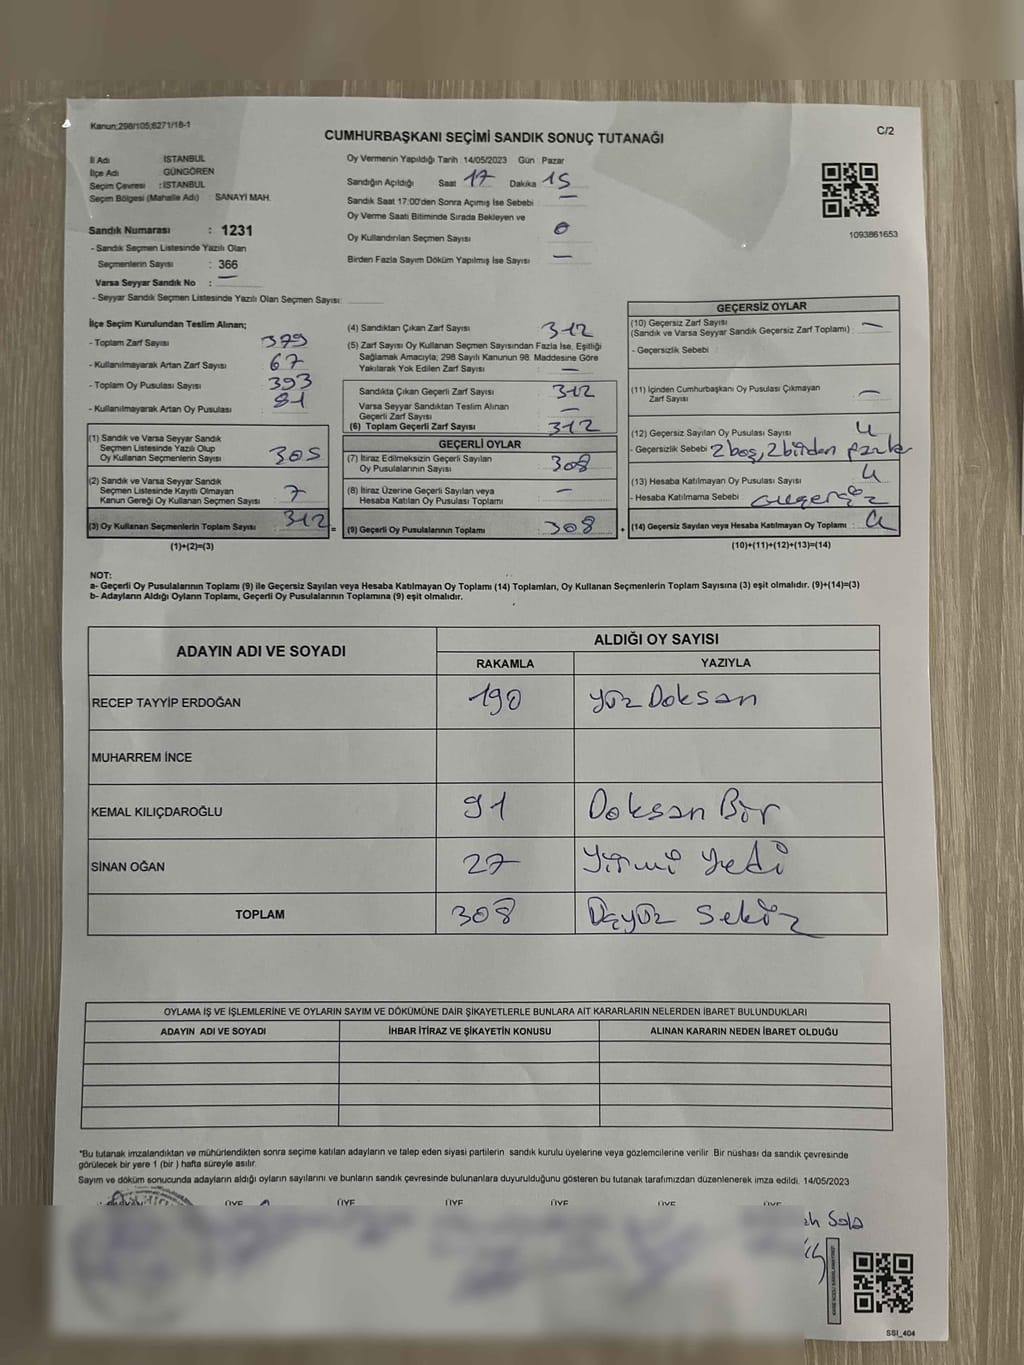 Kanun;298/105;6271/18-1
C/2
CUMHURBAŞKANI SEÇİMİ SANDIK SONUÇ TUTANAĞI
İl Adı : İSTANBUL
İlçe Adı : GÜNGÖREN
Seçim Çevresi : İSTANBUL
Seçim Bölgesi (Mahalle Adı) : SANAYİ MAH.
Sandık Numarası : 1231
- Sandık Seçmen Listesinde Yazılı Olan
Seçmenlerin Sayısı : 366
Varsa Seyyar Sandık No : —
- Seyyar Sandık Seçmen Listesinde Yazılı Olan Seçmen Sayısı:
Oy Vermenin Yapıldığı Tarih 14/05/2023 Gün : Pazar
Sandığın Açıldığı Saat 17 Dakika 15
Sandık Saat 17:00'den Sonra Açımış İse Sebebi —
Oy Verme Saati Bitiminde Sırada Bekleyen ve
Oy Kullandırılan Seçmen Sayısı 0
Birden Fazla Sayım Döküm Yapılmış İse Sayısı —
1093861653
İlçe Seçim Kurulundan Teslim Alınan;
- Toplam Zarf Sayısı : 379
- Kullanılmayarak Artan Zarf Sayısı : 67
- Toplam Oy Pusulası Sayısı : 393
- Kullanılmayarak Artan Oy Pusulası : 81
(1) Sandık ve Varsa Seyyar Sandık
Seçmen Listesinde Yazılı Olup
Oy Kullanan Seçmenlerin Sayısı : 305
(2) Sandık ve Varsa Seyyar Sandık
Seçmen Listesinde Kayıtlı Olmayan
Kanun Gereği Oy Kullanan Seçmen Sayısı : 7
(3) Oy Kullanan Seçmenlerin Toplam Sayısı : 312 =
(1)+(2)=(3)
(4) Sandıktan Çıkan Zarf Sayısı : 312
(5) Zarf Sayısı Oy Kullanan Seçmen Sayısından Fazla İse, Eşitliği
Sağlamak Amacıyla; 298 Sayılı Kanunun 98. Maddesine Göre
Yakılarak Yok Edilen Zarf Sayısı : —
Sandıkta Çıkan Geçerli Zarf Sayısı : 312
Varsa Seyyar Sandıktan Teslim Alınan
Geçerli Zarf Sayısı : —
(6) Toplam Geçerli Zarf Sayısı : 312
GEÇERLİ OYLAR
(7) İtiraz Edilmeksizin Geçerli Sayılan
Oy Pusulalarının Sayısı : 308
(8) İtiraz Üzerine Geçerli Sayılan veya
Hesaba Katılan Oy Pusulası Toplamı : —
(9) Geçerli Oy Pusulalarının Toplamı : 308 +
GEÇERSİZ OYLAR
(10) Geçersiz Zarf Sayısı
(Sandık ve Varsa Seyyar Sandık Geçersiz Zarf Toplamı) : —
- Geçersizlik Sebebi :
(11) İçinden Cumhurbaşkanı Oy Pusulası Çıkmayan
Zarf Sayısı : —
(12) Geçersiz Sayılan Oy Pusulası Sayısı : 4
- Geçersizlik Sebebi : 2 boş, 2 birden fazla
(13) Hesaba Katılmayan Oy Pusulası Sayısı : 4
- Hesaba Katılmama Sebebi :
(14) Geçersiz Sayılan veya Hesaba Katılmayan Oy Toplamı : 4
(10)+(11)+(12)+(13)=(14)
NOT:
a- Geçerli Oy Pusulalarının Toplamı (9) ile Geçersiz Sayılan veya Hesaba Katılmayan Oy Toplamı (14) Toplamları, Oy Kullanan Seçmenlerin Toplam Sayısına (3) eşit olmalıdır. (9)+(14)=(3)
b- Adayların Aldığı Oyların Toplamı, Geçerli Oy Pusulalarının Toplamına (9) eşit olmalıdır.
ADAYIN ADI VE SOYADI ALDIĞI OY SAYISI
RAKAMLA YAZIYLA
RECEP TAYYİP ERDOĞAN 190 Yüz Doksan
MUHARREM İNCE
KEMAL KILIÇDAROĞLU 91 Doksan Bir
SİNAN OĞAN 27 Yirmi Yedi
TOPLAM 308 Üçyüz Sekiz
OYLAMA İŞ VE İŞLEMLERİNE VE OYLARIN SAYIM VE DÖKÜMÜNE DAİR ŞİKAYETLERLE BUNLARA AİT KARARLARIN NELERDEN İBARET BULUNDUKLARI
ADAYIN ADI VE SOYADI İHBAR İTİRAZ VE ŞİKAYETİN KONUSU ALINAN KARARIN NEDEN İBARET OLDUĞU
*Bu tutanak imzalandıktan ve mühürlendikten sonra seçime katılan adayların ve talep eden siyasi partilerin sandık kurulu üyelerine veya gözlemcilerine verilir. Bir nüshası da sandık çevresinde
görülecek bir yere 1 (bir ) hafta süreyle asılır.
Sayım ve döküm sonucunda adayların aldığı oyların sayılarını ve bunların sandık çevresinde bulunanlara duyurulduğunu gösteren bu tutanak tarafımızdan düzenlenerek imza edildi. 14/05/2023
ÜYE ÜYE ÜYE ÜYE ÜYE ÜYE
SSI_404